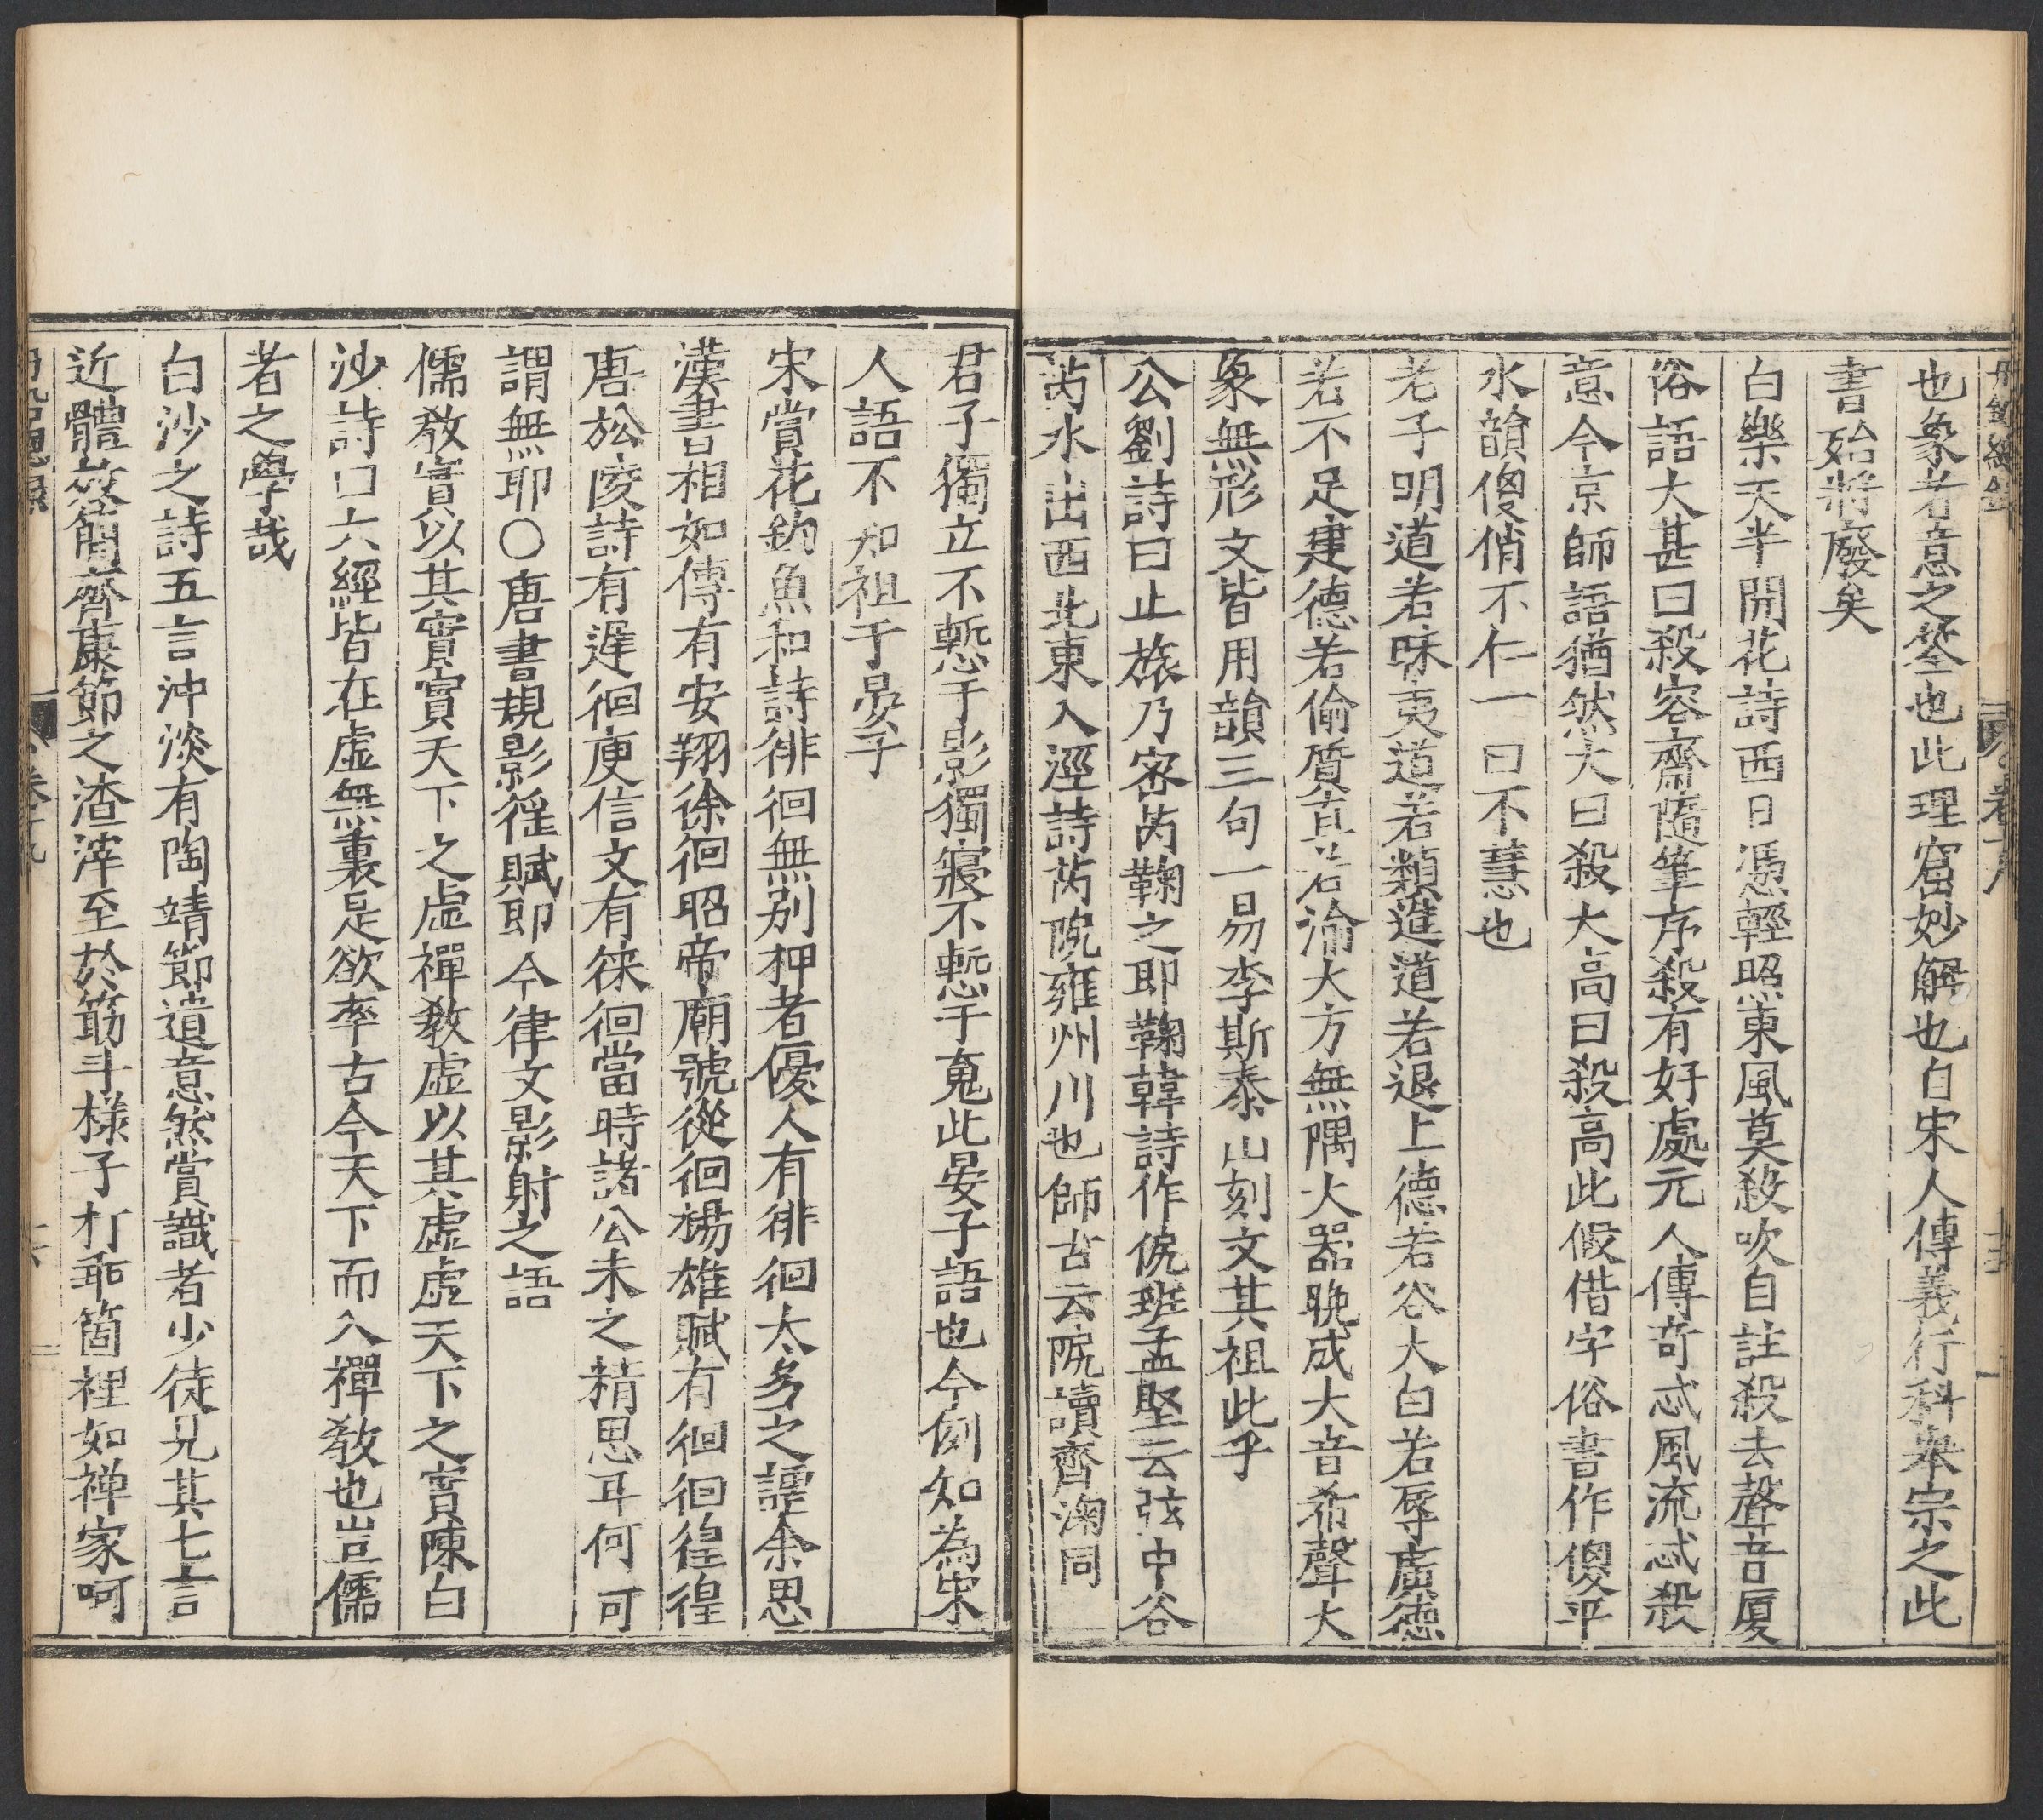 也象者意之筌也此理窟妙解也自宋人傳義行科舉宗之此
書殆將廢矣
白樂天半開花詩西日憑輕照東風莫殺吹自註殺去聲音厦
俗語大甚曰殺容齋隨筆序殺有好處元人傳奇忒風流忒殺
意今京師語猶然大曰殺大高曰殺高此假借字俗書作傻平
水韻傻俏不仁一曰不慧也
老子明道若昧夷道若類進道若退上德若谷大白若辱廣德
若不足建德若偷質直若渝大方無隅大器晚成大音希聲大
象無形文皆用韻三句一易李斯泰山刻文其祖此乎
公劉詩曰止旅乃密芮鞫之即鞫韓詩作㑆班孟堅云弦中谷
芮水出西北東入涇詩芮阮雍州川也師古云阮讀齊渹同
君子獨立不慙于影獨寢不慙于䰟此晏子語也今例知為宋
人語不知祖于晏子
宋賞花釣魚和詩徘徊無別押者優人有徘徊太多之謔余思
漢書相如傳有安翔徐徊昭帝廟號從徊楊雄賦有徊徊徨徨
唐松陵詩有遲徊庾信文有徠徊當時諸公未之精思耳何可
謂無耶○唐書規影徭賦即今律文影射之語
儒教實以其實實天下之虛禪教虛以其虛虛天下之實陳白
沙詩曰六經皆在虛無裏是欲率古今天下而入禪教也豈儒
者之學哉
白沙之詩五言沖淡有陶靖節遺意然賞識者少徒見其七言
近體效簡齋康節之渣滓至於筋斗樣子打乖箇裡如禅家呵